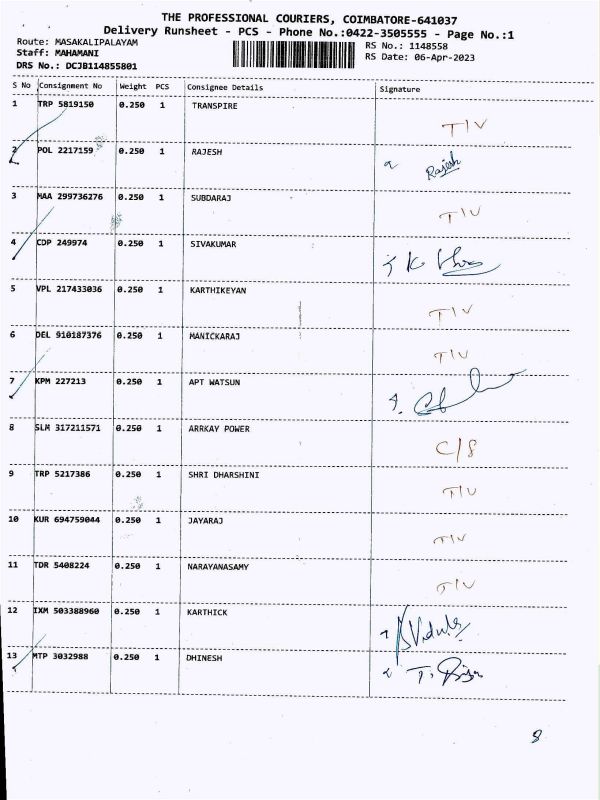 THE PROFESSIONAL COURIERS, COIMBATORE-641037
Delivery Runsheet - PCS - Phone No.:0422-3505555 - Page No.:1
Route: MASAKALIPALAYAM
RS No.: 1148558
Staff: MAHAMANI
RS Date: 06-Apr-2023
DRS No.: DCJB114855801
S No Consignment No Weight PCS Consignee Details Signature
1 TRP 5819150 0.250 1 TRANSPIRE T/V
2 POL 2217159 0.250 1 RAJESH Rajesh
3 MAA 299736276 0.250 1 SUBDARAJ T/V
4 CDP 249974 0.250 1 SIVAKUMAR
5 VPL 217433036 0.250 1 KARTHIKEYAN T/V
6 DEL 910187376 0.250 1 MANICKARAJ T/V
7 KPM 227213 0.250 1 APT WATSUN
8 SLM 317211571 0.250 1 ARRKAY POWER C/S
9 TRP 5217386 0.250 1 SHRI DHARSHINI T/V
10 KUR 694759044 0.250 1 JAYARAJ T/V
11 TDR 5408224 0.250 1 NARAYANASAMY T/V
12 IXM 503388960 0.250 1 KARTHICK
13 MTP 3032988 0.250 1 DHINESH
8